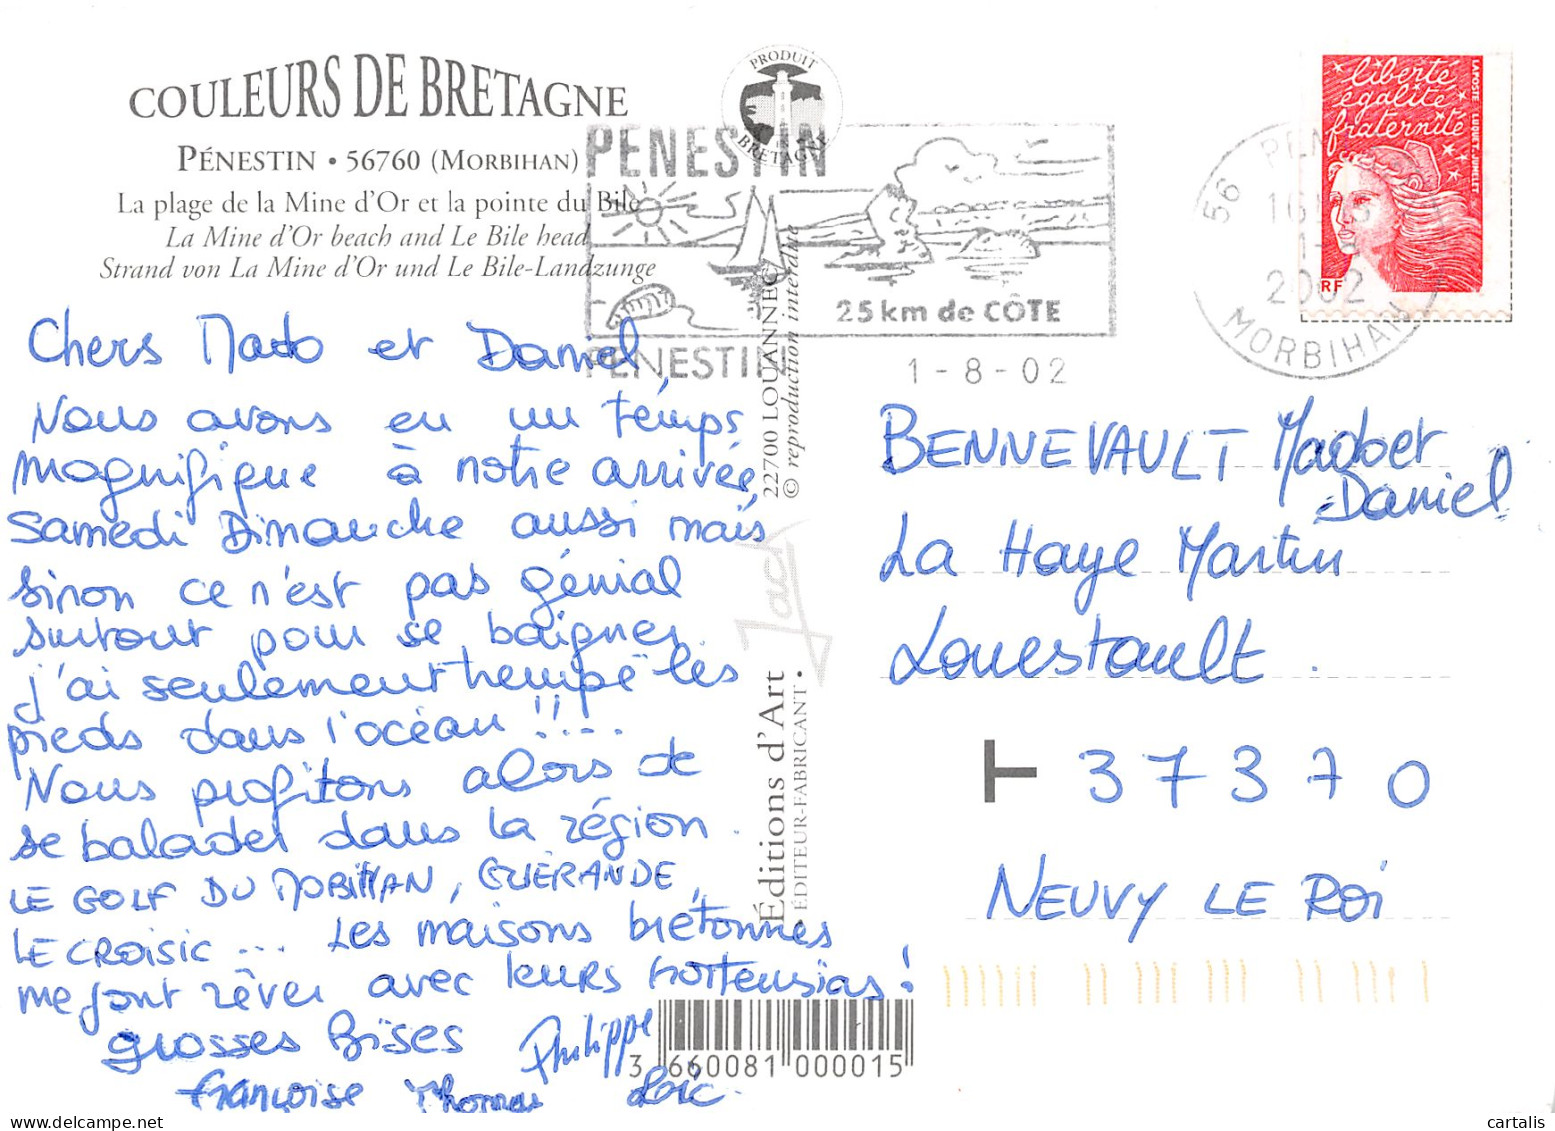 COULEURS DE BRETAGNE
PÉNESTIN • 56760 (MORBIHAN)
La plage de la Mine d'Or et la pointe du Bile
La Mine d'Or beach and Le Bile head
Strand von La Mine d'Or und Le Bile-Landzunge
PRODUIT EN BRETAGNE
PENESTIN
25 km de CÔTE
PENESTIN
1-8-02
56 PEN
16H
1-8
2002
MORBIHAN
liberté
égalité
fraternité
RF
LA POSTE LUQUET-JUMELET
Chers Mado et Daniel,
Nous avons eu un temps
magnifique à notre arrivée,
Samedi Dimanche aussi mais
sinon ce n'est pas génial
surtout pour se baigner.
j'ai seulement trempé les
pieds dans l'océan !!...
Nous profitons alors de
se balader dans la région.
LE GOLF DU MOBIHAN, GUÉRANDE,
LE CROISIC... Les maisons brétonnes
me font rêver avec leurs hortensias !
grosses Bises Philippe
françoise Thomas Loïc.
22700 LOUANNEC
© reproduction interdite
Jack
Éditions d'Art
• ÉDITEUR-FABRICANT •
3 660081 000015
BENNEVAULT Mado et
Daniel
La Haye Martin
Louestault.
37370
NEUVY LE ROI
cartalis